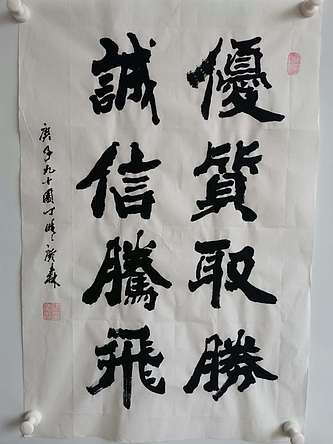 優質取勝
誠信騰飛
庚子九十圍丁
森